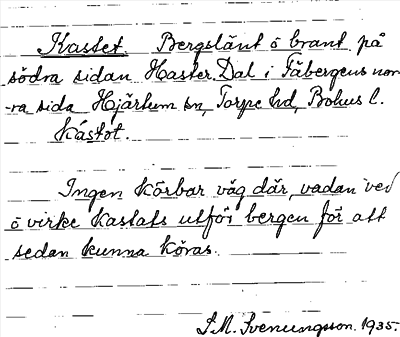 Kastet. Bergslänt o brant på
södra sidan Haster Dal i Fäbergens nor-
ra sida Hjärtum sn, Torpe hd, Bohus l.
Kástot.
Ingen körbar väg där, vadan ved
o virke kastats utför bergen för att
sedan kunna köras.
S.M. Svenungsson. 1935.